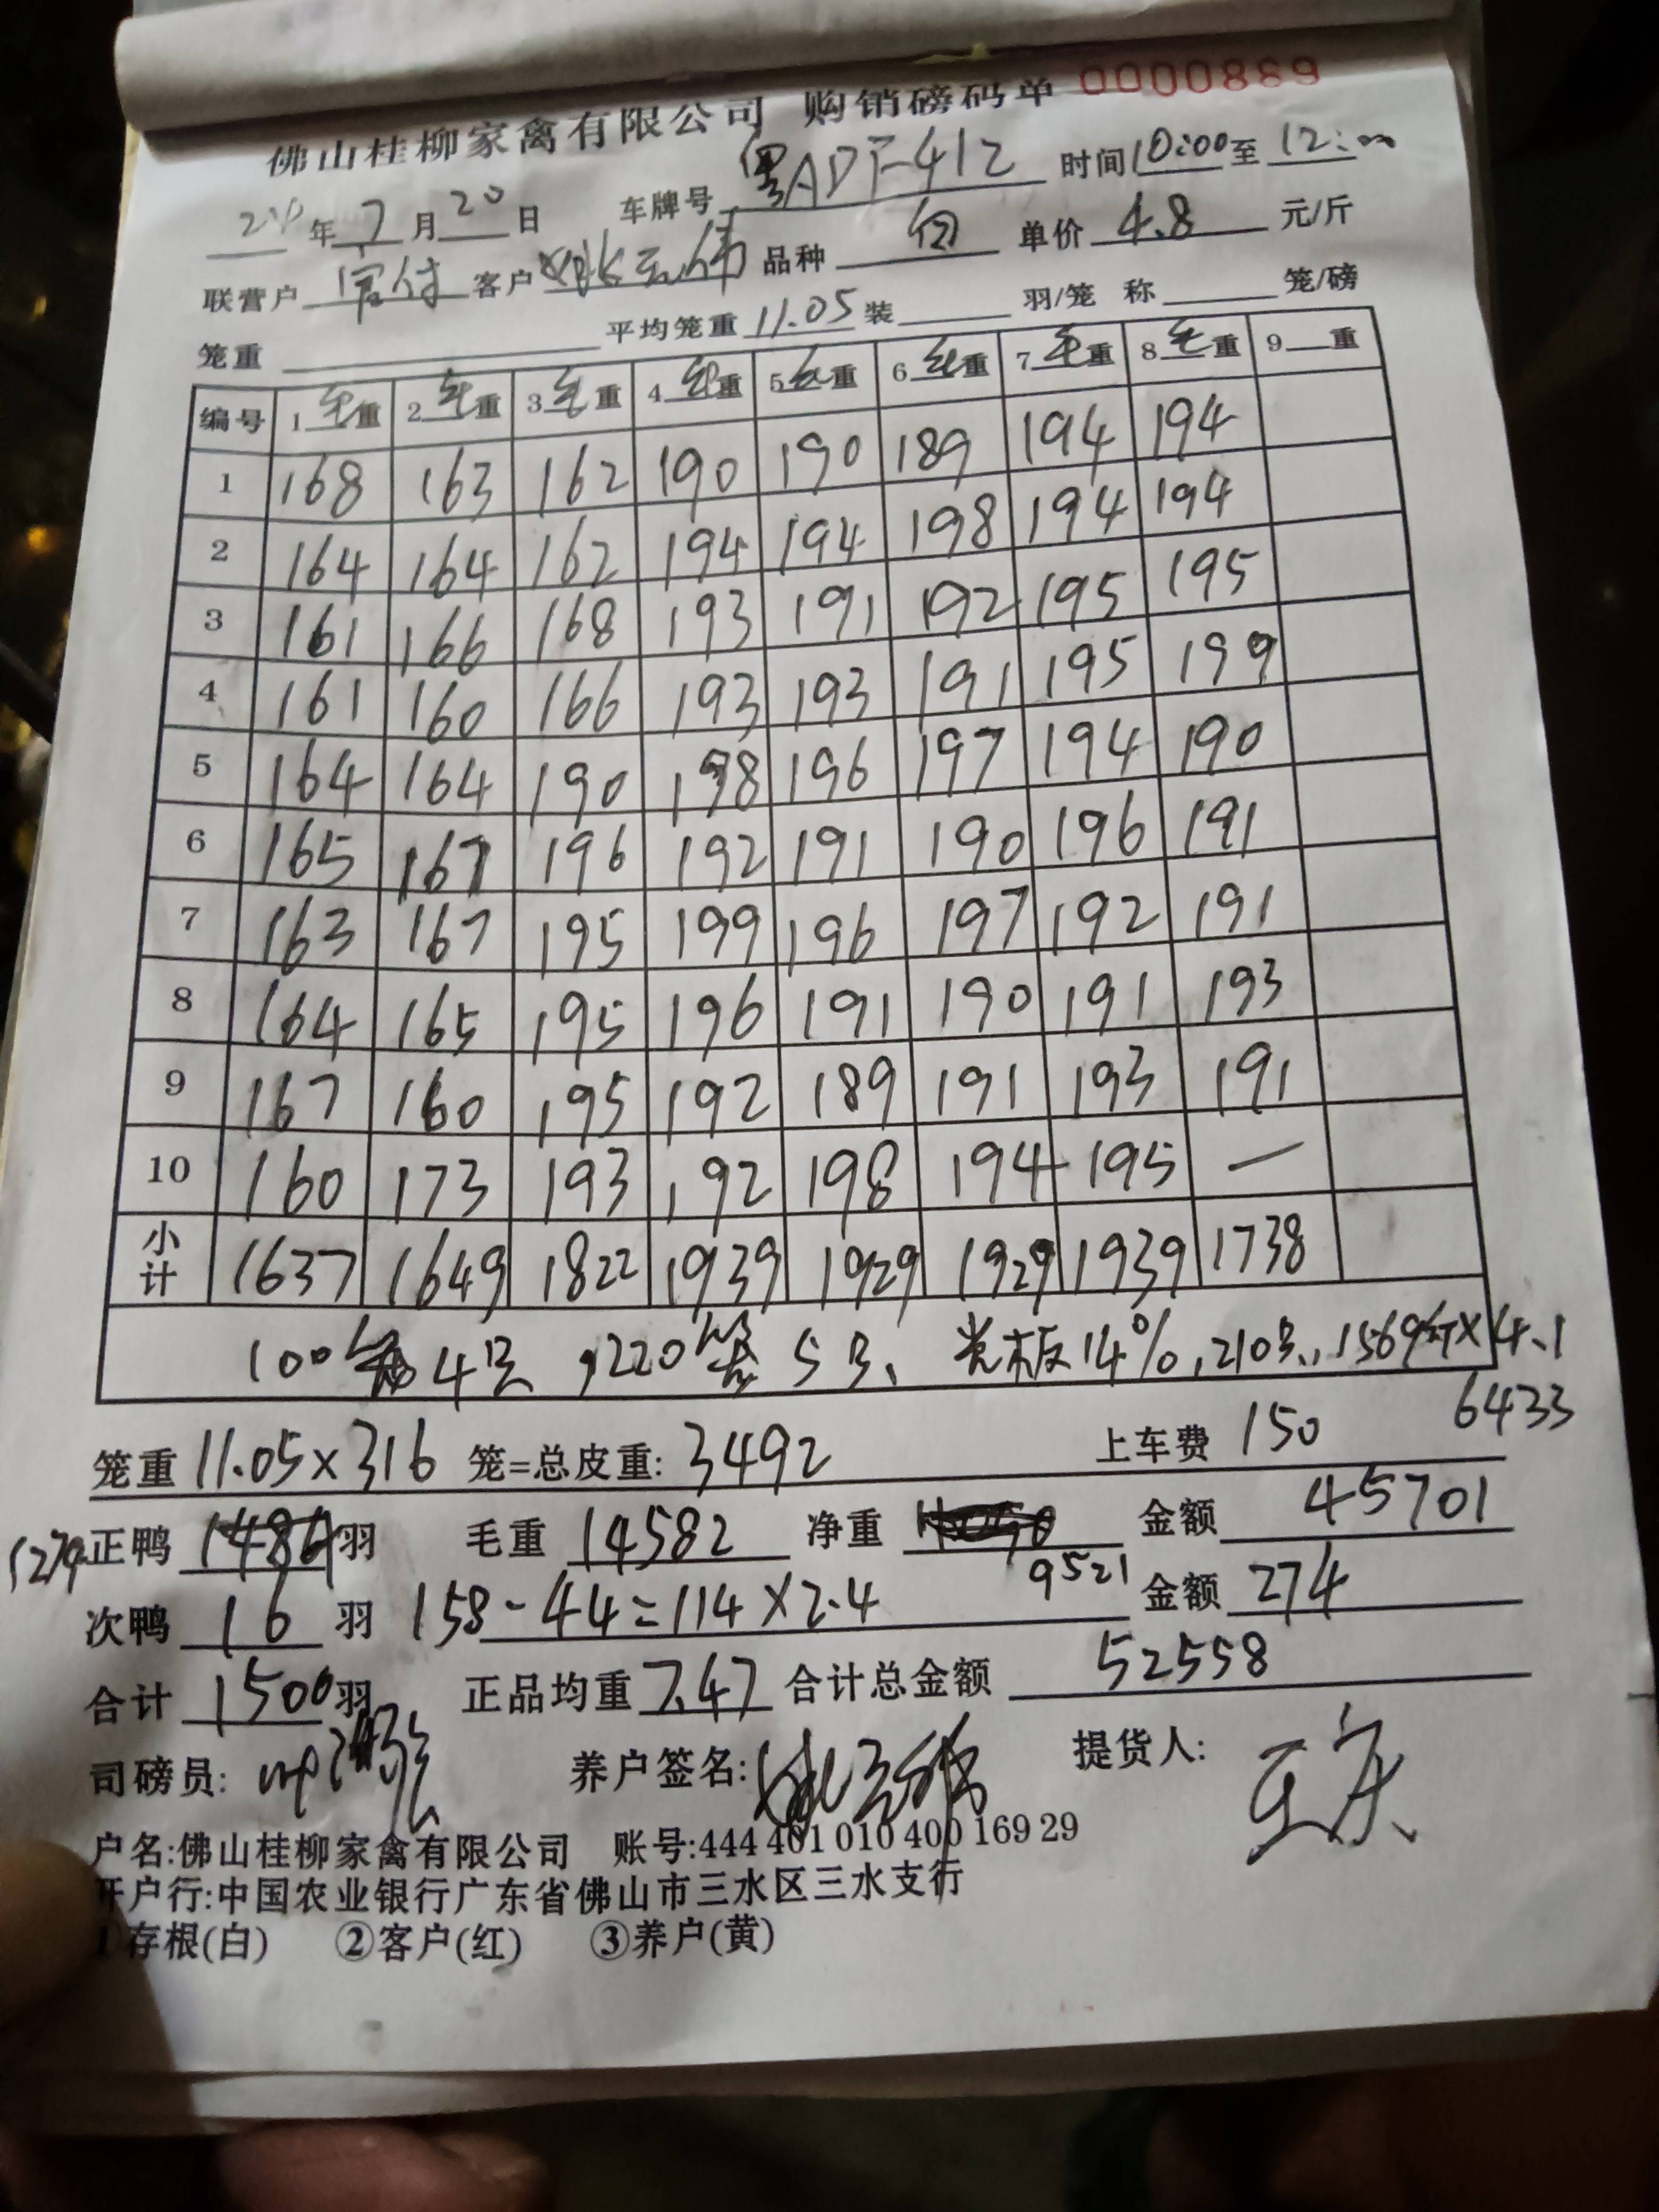 佛山桂柳家禽有限公司 购销磅码单 0000889
24年7月20日 车牌号 黑ADF412 时间10:00至12:00
联营户 客户姚云伟 品种 单价 4.8 元/斤
笼重 平均笼重 11.05 装 羽/笼 称 笼/磅
编号 1 毛重 2 毛重 3 毛重 4 毛重 5 毛重 6 毛重 7 毛重 8 毛重 9 重
1 168 163 162 190 190 189 194 194
2 164 164 162 194 194 198 194 194
3 161 166 168 193 191 192 195 195
4 161 160 166 193 193 191 195 199
5 164 164 190 198 196 197 194 190
6 165 167 196 192 191 190 196 191
7 163 167 195 199 196 197 192 191
8 164 165 195 196 191 190 191 193
9 167 160 195 192 189 191 193 191
10 160 173 193 192 198 194 195 —
小计 1637 1649 1822 1939 1929 1929 1939 1738
100笼4只,220笼5只、光板14%,210只,1569斤×4.1
6433
笼重 11.05×316 笼=总皮重: 3492 上车费 150
1274 正鸭 1484 羽 毛重 14582 净重 金额 45701
9521
次鸭 16 羽 158-44=114×2.4 金额 274
合计 1500 羽 正品均重 7.47 合计总金额 52558
司磅员: 养户签名: 姚云伟 提货人:
户名:佛山桂柳家禽有限公司 账号:444 401 010 400 169 29
开户行:中国农业银行广东省佛山市三水区三水支行
①存根(白) ②客户(红) ③养户(黄)